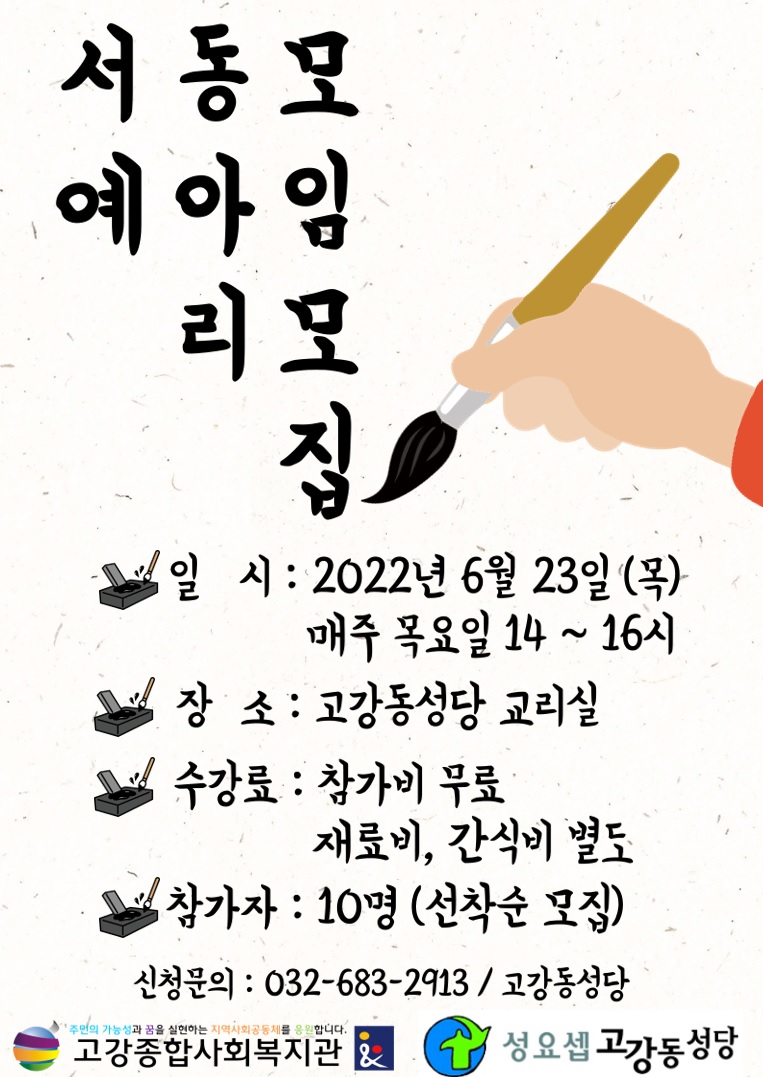 서예
동아리
모임모집
일 시 : 2022년 6월 23일 (목)
매주 목요일 14 ~ 16시
장 소 : 고강동성당 교리실
수강료 : 참가비 무료
재료비, 간식비 별도
참가자 : 10명 (선착순 모집)
신청문의 : 032-683-2913 / 고강동성당
주민의 가능성과 꿈을 실현하는 지역사회공동체를 응원합니다.
고강종합사회복지관
성요셉 고강동성당